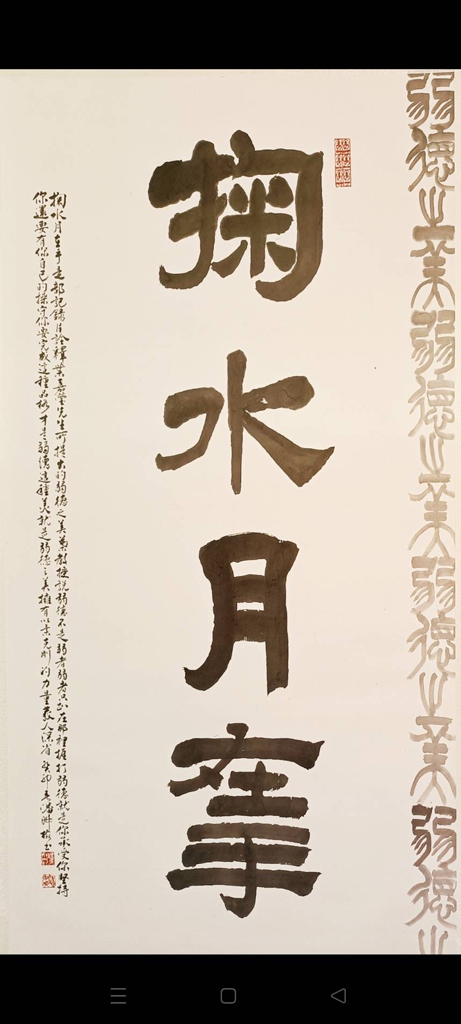 弱德之美弱德之美弱德之美弱德之
掬水月在手
掬水月在手是部記錄片詮釋葉嘉瑩先生所提出的弱德之美葉教授說弱德不是弱者弱者只趴在那裡挨打弱德就是你承受你堅持
你還要有你自己的操守你要完成這種品格才是弱德這種美就是弱德之美擁有以柔克剛的力量發人深省癸卯